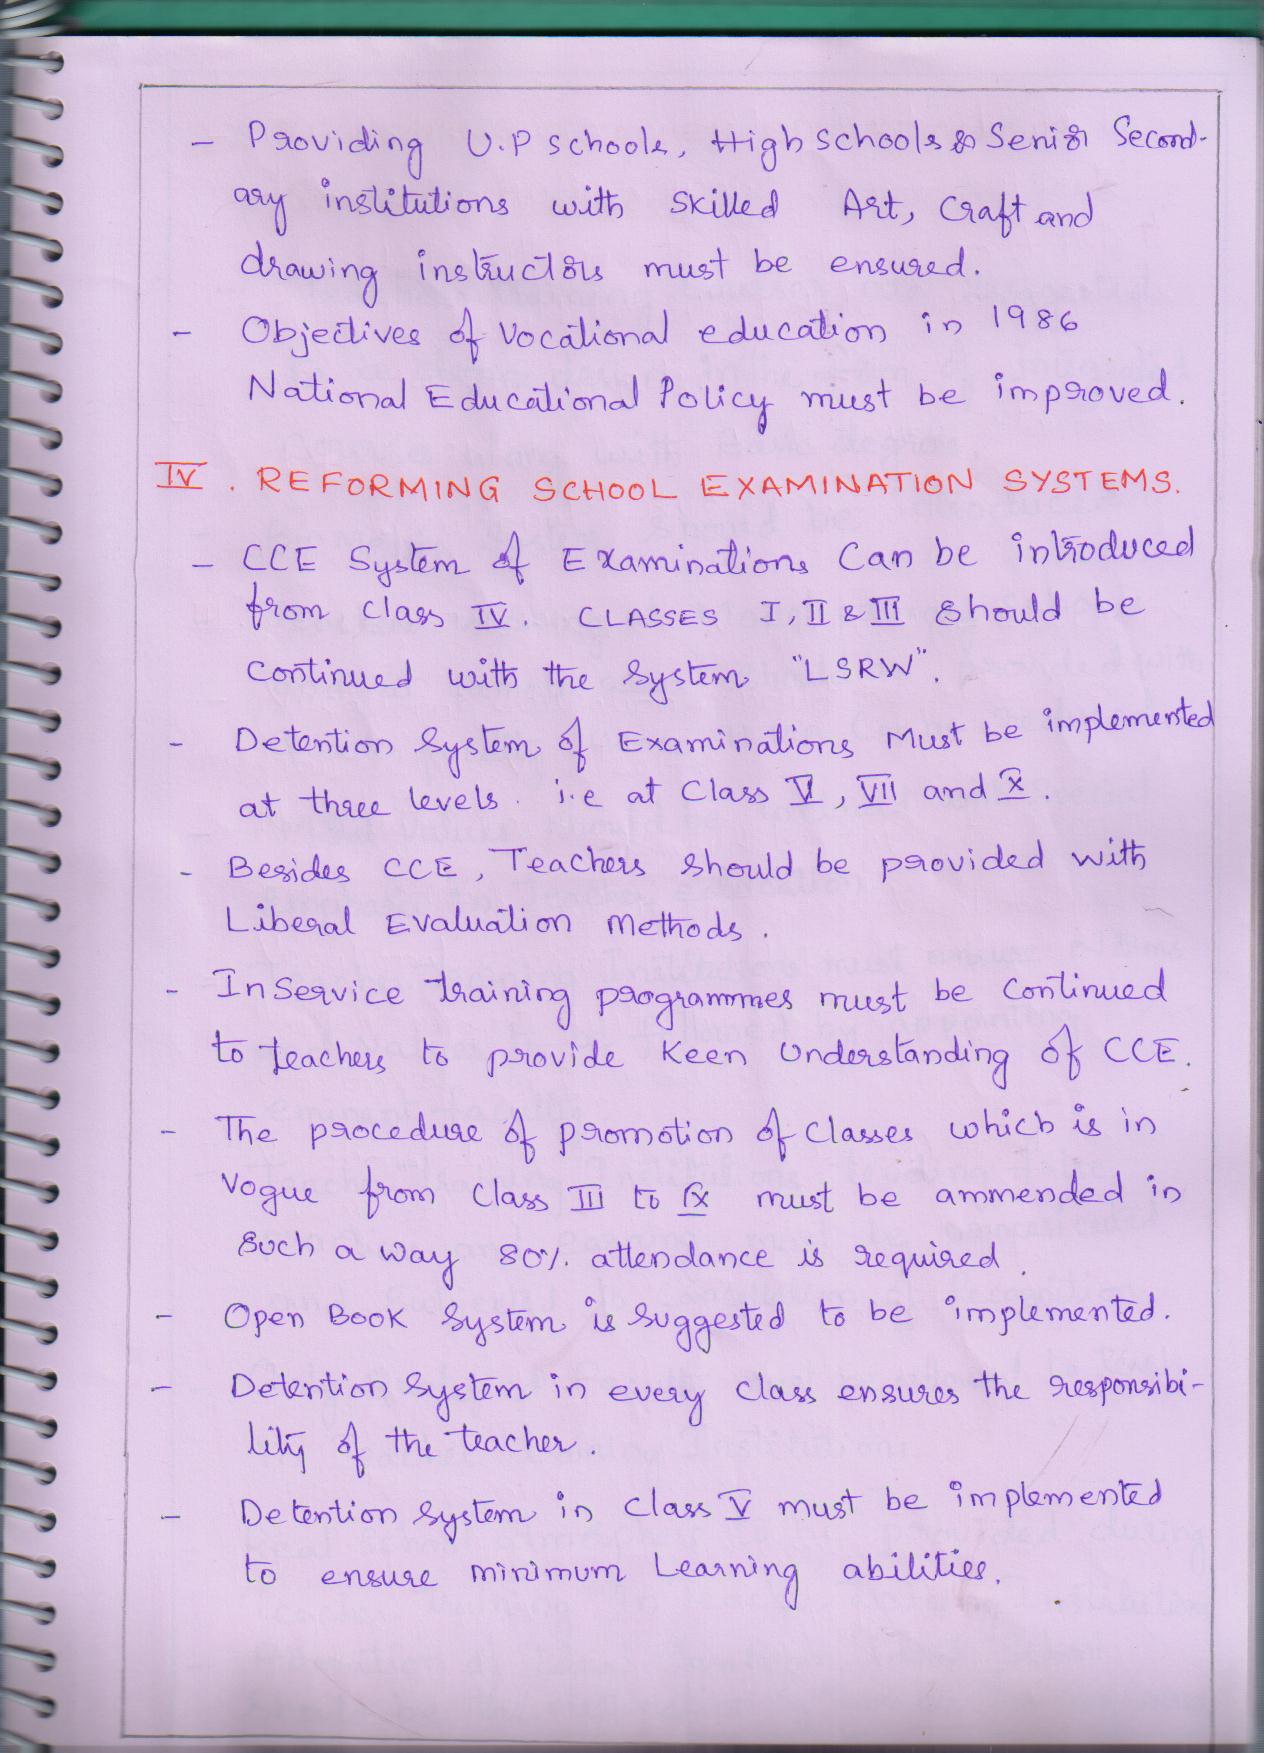 - Providing U.P schools, High schools & Senior Second-
ary institutions with skilled Art, Craft and
drawing instructors must be ensured.
- Objectives of vocational education in 1986
National Educational Policy must be improved.
IV. REFORMING SCHOOL EXAMINATION SYSTEMS.
- CCE System of Examinations Can be introduced
from class IV. CLASSES I, II & III should be
continued with the system "LSRW".
- Detention system of Examinations Must be implemented
at three levels. i.e at Class V, VII and X.
- Besides CCE, Teachers should be provided with
Liberal Evaluation Methods.
- InService training programmes must be continued
to teachers to provide Keen Understanding of CCE.
- The procedure of promotion of classes which is in
vogue from class III to IX must be ammended in
such a way 80% attendance is required.
- Open Book system is suggested to be implemented.
- Detention system in every class ensures the responsibi-
lity of the teacher.
- Detention system in class V must be implemented
to ensure minimum Learning abilities.